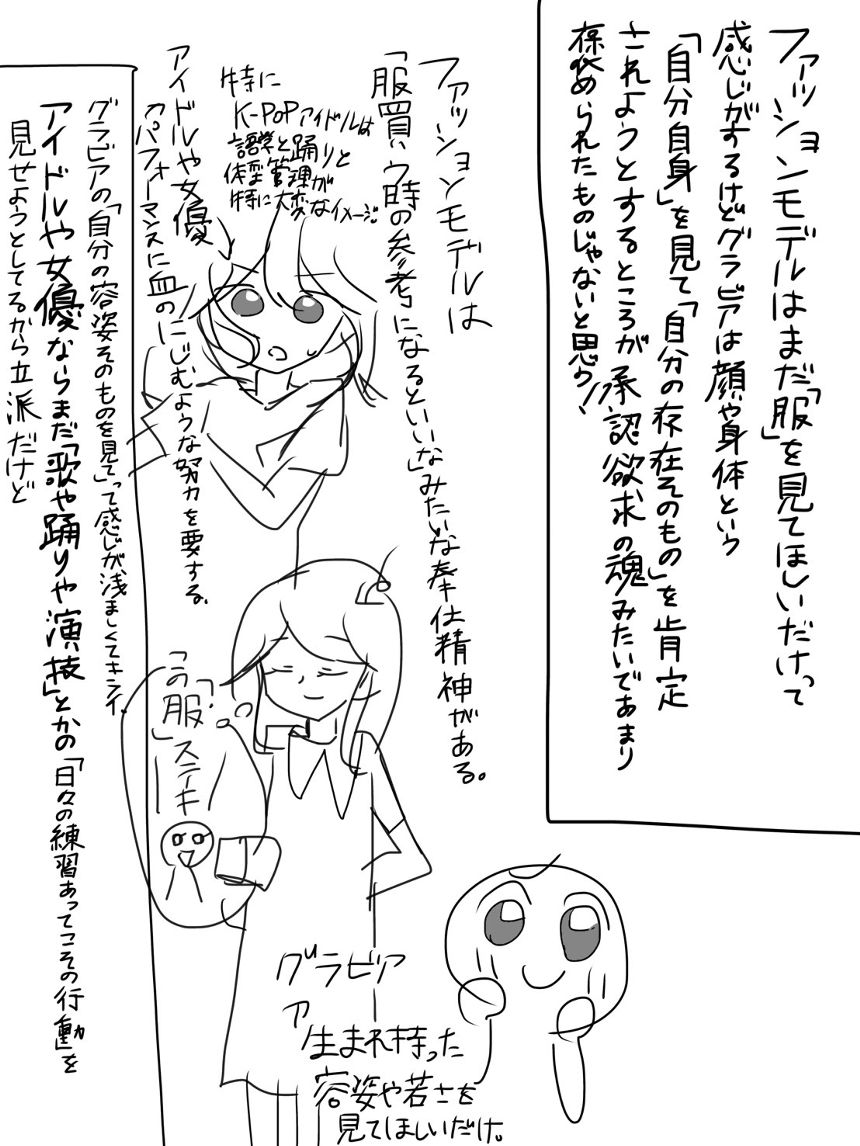 ファッションモデルはまだ「服」を見てほしいだけって
感じがするけどグラビアは顔や身体という
「自分自身」を見て「自分の存在そのもの」を肯定
されようとするところが承認欲求の魂みたいであまり
褒められたものじゃないと思う
ファッションモデルは
「服買う時の参考になるといいな」みたいな奉仕精神がある。
特に
K-POPアイドルは
語学と踊りと
体型管理が
特に大変なイメージ
アイドルや女優
パフォーマンスに血のにじむような努力を要する。
「この
「服」ステキ
グラビア
生まれ持った
容姿や若さを
見てほしいだけ。
グラビアの「自分の容姿そのものを見て」って感じが浅ましくてキライ
アイドルや女優ならまだ「歌や踊りや演技」とかの「日々の練習あってこその行動」を
見せようとしてるから立派だけど